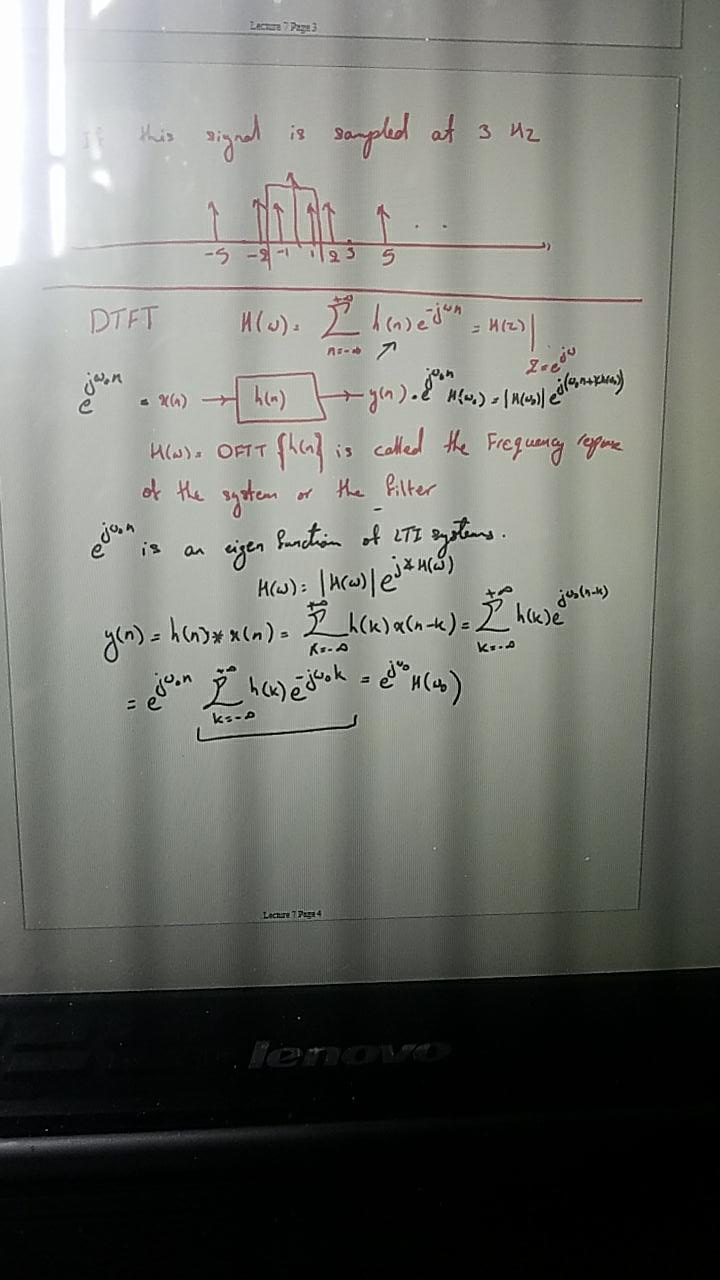 Lecture 7 Page 3
If this signal is sampled at 3 Hz
-5 -2 -1 1 2 3 5 . .
DTFT H(ω) = Σ_{n=-∞}^{+∞} h(n) e^{-jωn} = H(z)|_{z=e^{jω}}
e^{jω₀n} = x(n) → h(n) → y(n) = e^{jω₀n} H(ω₀) = |H(ω₀)| e^{j(ω₀n+∡H(ω₀))}
H(ω) = DFTT {h(n)} is called the Frequency
of the system or the filter
e^{jω₀n} is an eigen function of LTI systems.
H(ω) = |H(ω)| e^{j∡H(ω)}
y(n) = h(n) * x(n) = Σ_{k=-∞}^{+∞} h(k) x(n-k) = Σ_{k=-∞}^{+∞} h(k) e^{jω₀(n-k)}
= e^{jω₀n} Σ_{k=-∞}^{+∞} h(k) e^{-jω₀k} = e^{jω₀} H(ω₀)
Lecture 7 Page 4
lenovo